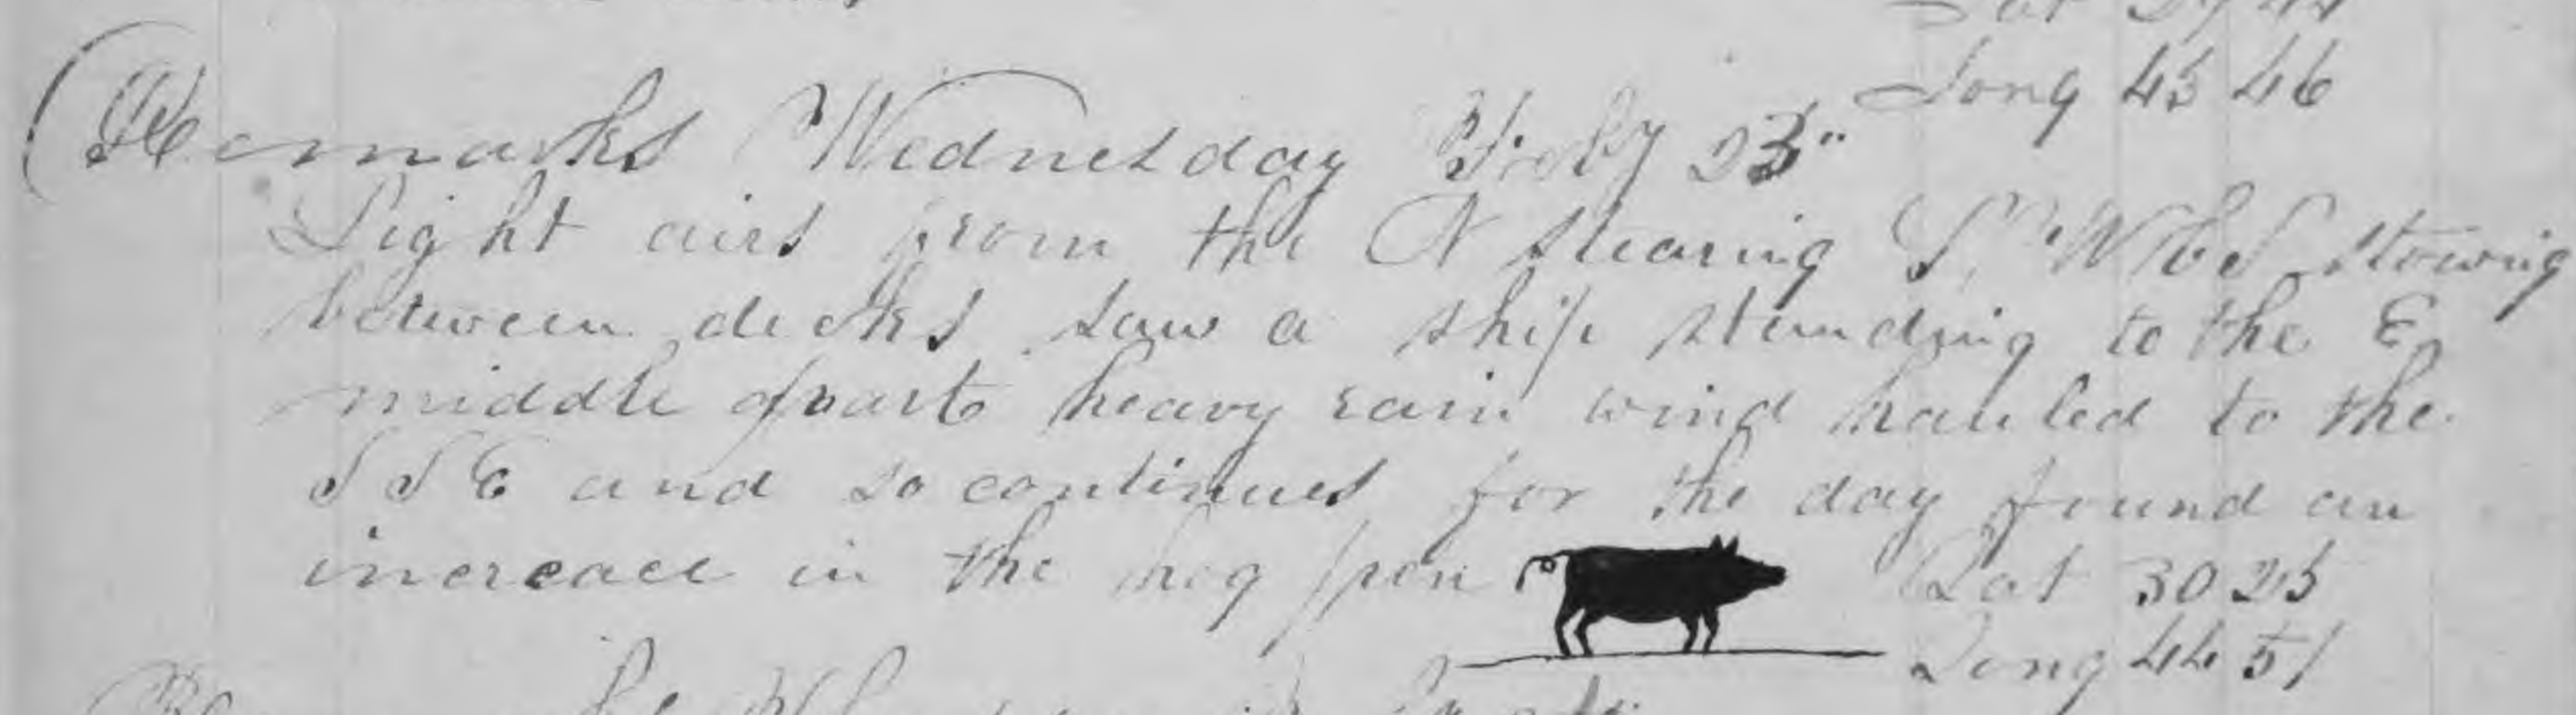 Long 45 46
Remarks Wednesday July 23"
Light airs from the N stearing S, W b S stowing
between decks saw a ship standing to the E
middle part heavy rain wind hauled to the
S S E and so continues for the day found an
increace in the hog pen
Lat 30 25
Long 44 51